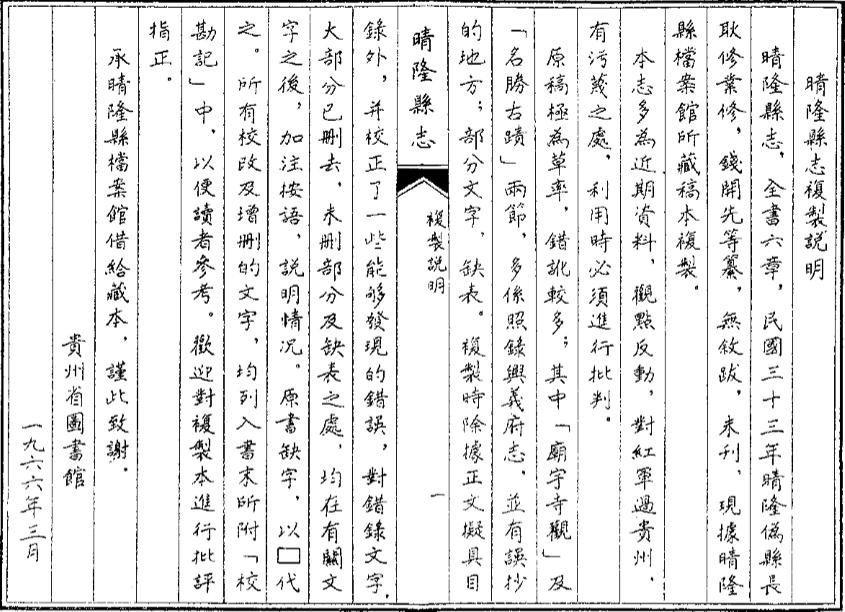 晴隆縣志複製説明
晴隆縣志，全書六章，民國三十三年晴隆偽縣長
耿修業修，錢開先等纂，無敘跋，未刊，現據晴隆
縣檔案館所藏稿本複製。
本志多為近期資料，觀點反動，對紅軍過貴州，
有污蔑之處，利用時必須進行批判。
原稿極為草率，錯訛較多；其中「廟宇寺觀」及
「名勝古蹟」兩節，多係照錄興義府志，並有誤抄
的地方；部分文字，缺表。複製時除據正文擬具目
晴隆縣志
複製説明
一
錄外，并校正了一些能够發現的錯誤，對錯錄文字，
大部分已刪去，未刪部分及缺表之處，均在有關文
字之後，加注按語，説明情况。原書缺字，以□代
之。所有校改及增刪的文字，均列入書末所附「校
勘記」中，以便讀者參考。歡迎對複製本進行批評
指正。
承晴隆縣檔案館借給藏本，謹此致謝。
貴州省圖書館
一九六六年三月